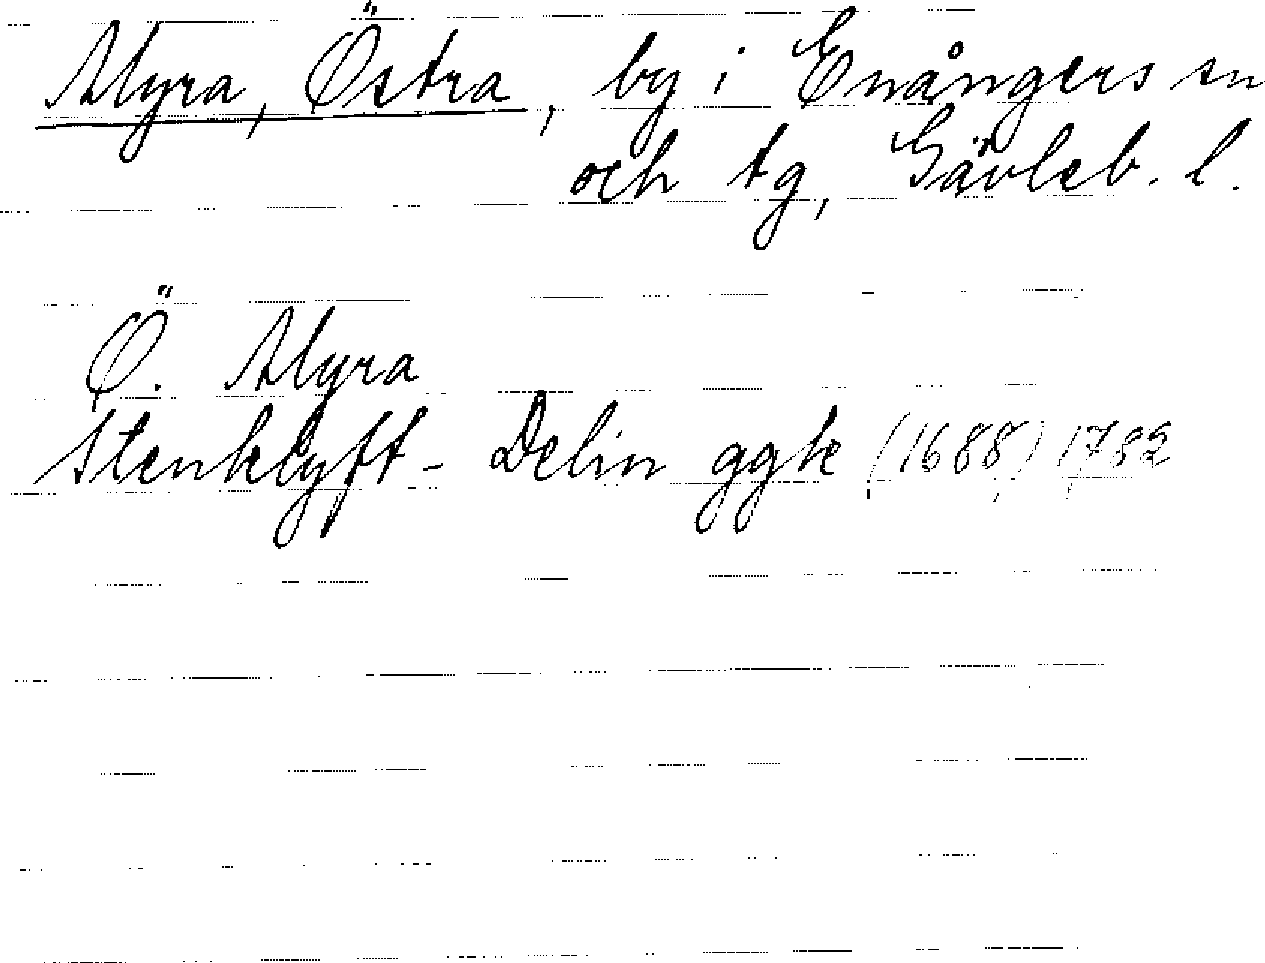 Myra, Östra, by i Enångers sn
och tg, Gävleb. l.
Ö. Myra
Stenklyft - Delin ggk (1688) 1782